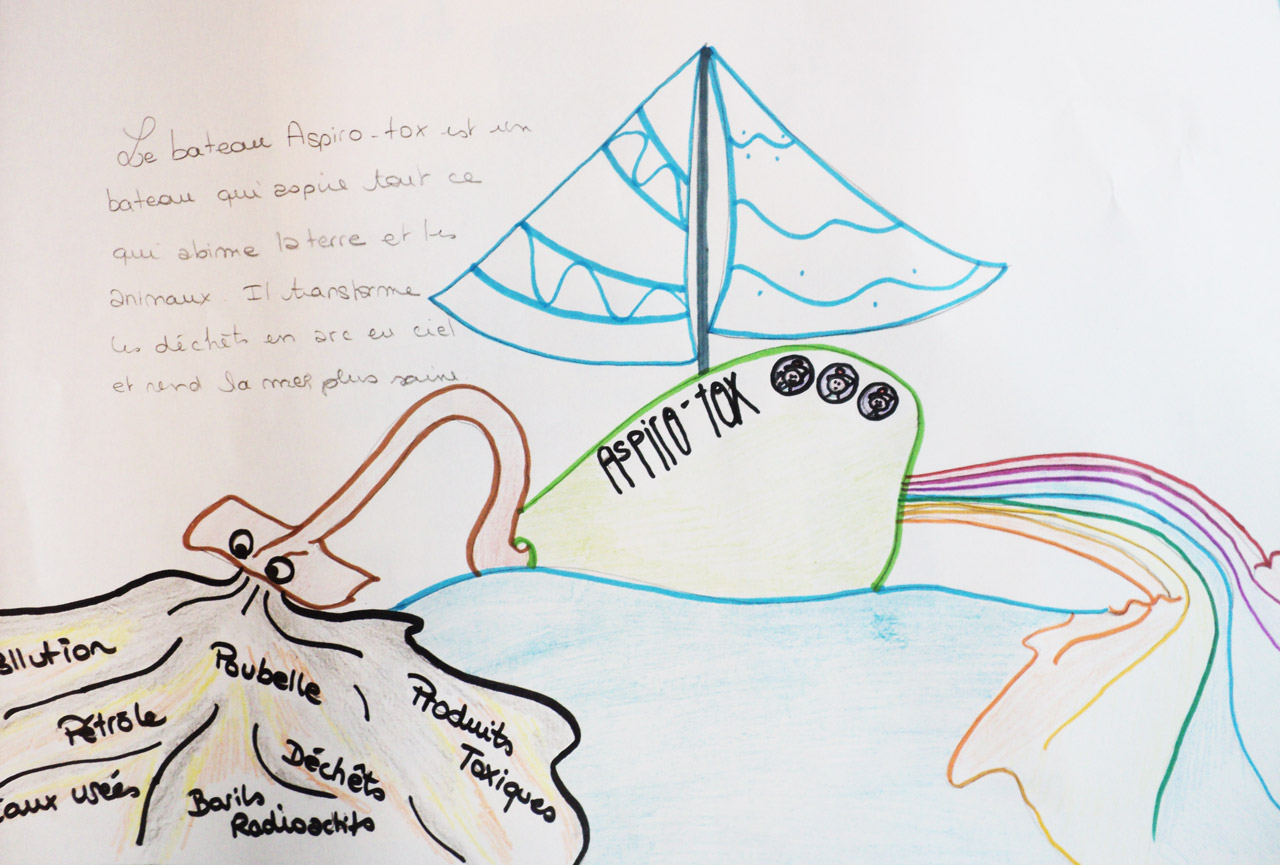 Le bateau Aspiro-tox est un
bateau qui aspire tout ce
qui abime la terre et les
animaux. Il transforme
les déchêts en arc en ciel
et rend la mer plus saine
Aspiro-tox
Pollution
Poubelle
Produits
Toxiques
Pétrôle
Déchêts
Eaux usées
Barils
Radioactifs